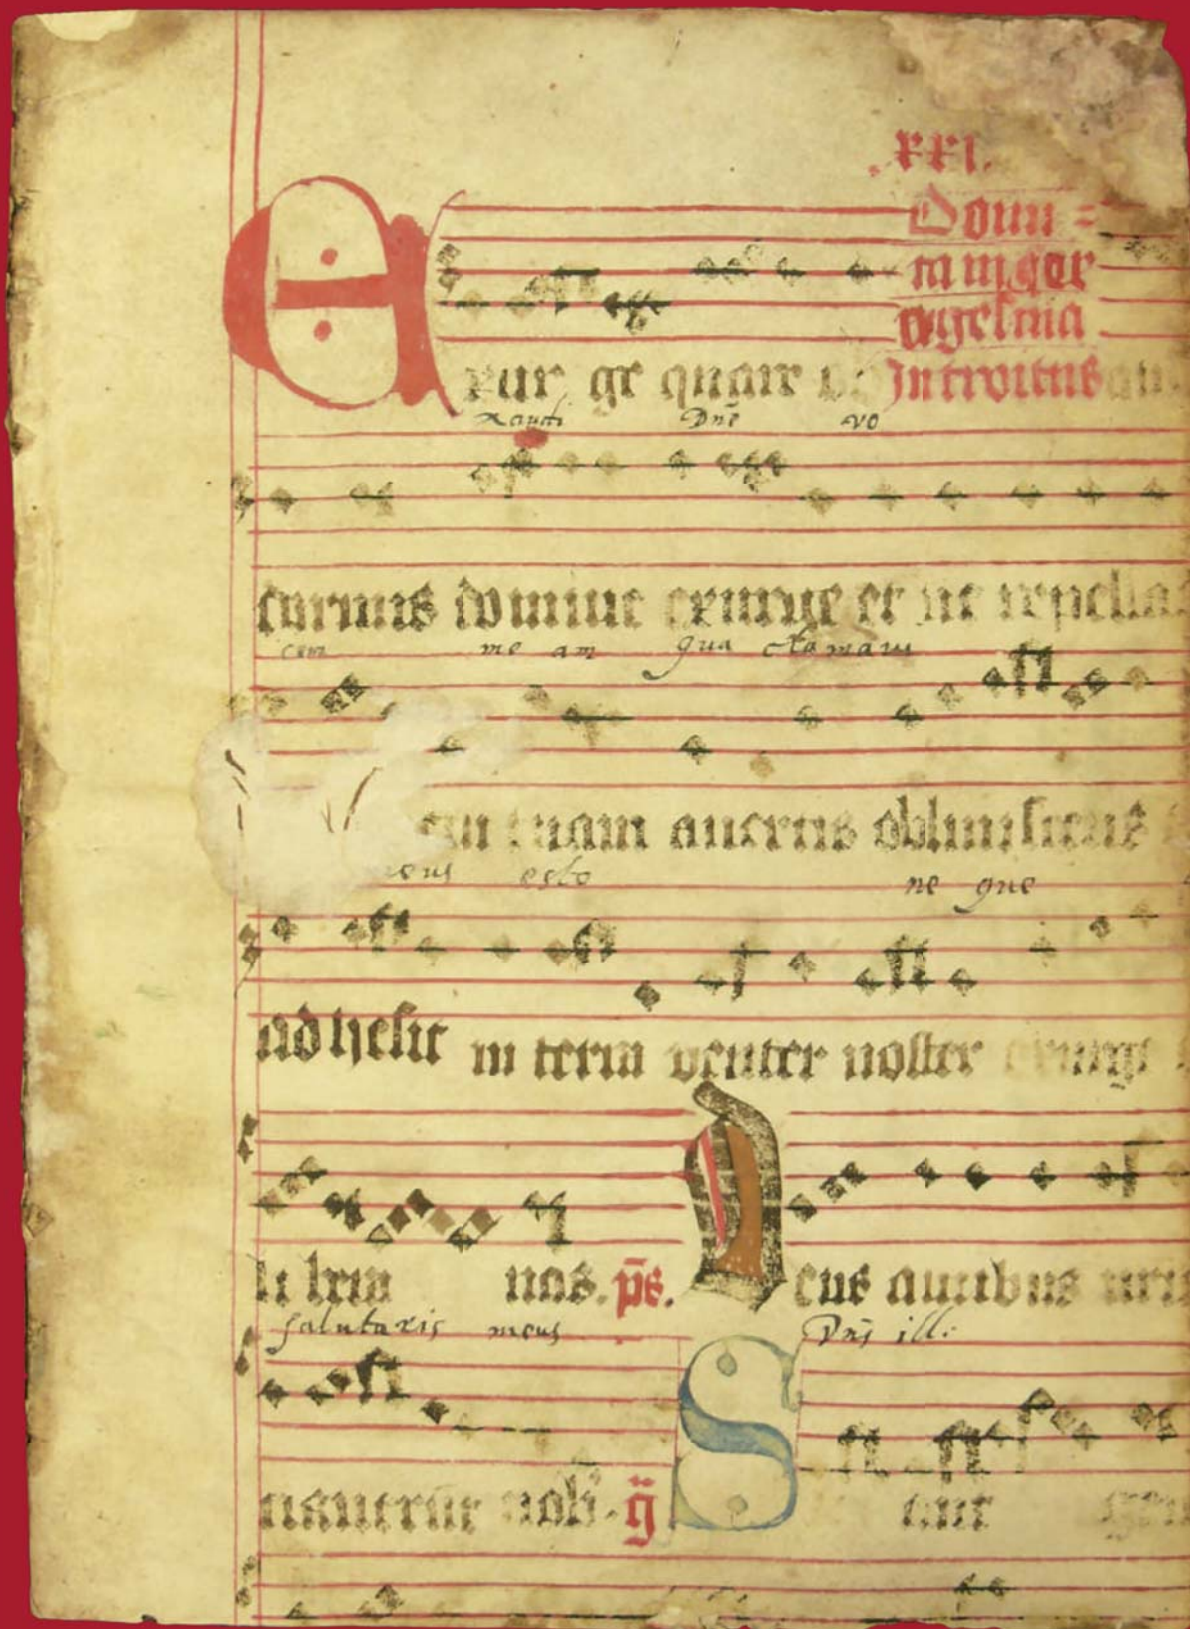 .xxi.
Domi=
ca in sex
agesima
Introitus
Exur ge quare
xaudi Dne vo
dormis domine exurge et ne repellas
cem me am qua clamavi
tuam avertis oblivisceris
meus esto ne que
adhesit in terra venter noster exurge
li bera nos. ps. Deus auribus
salutaris meus Dns ill:
nunciaverunt nobis. S ciant gen